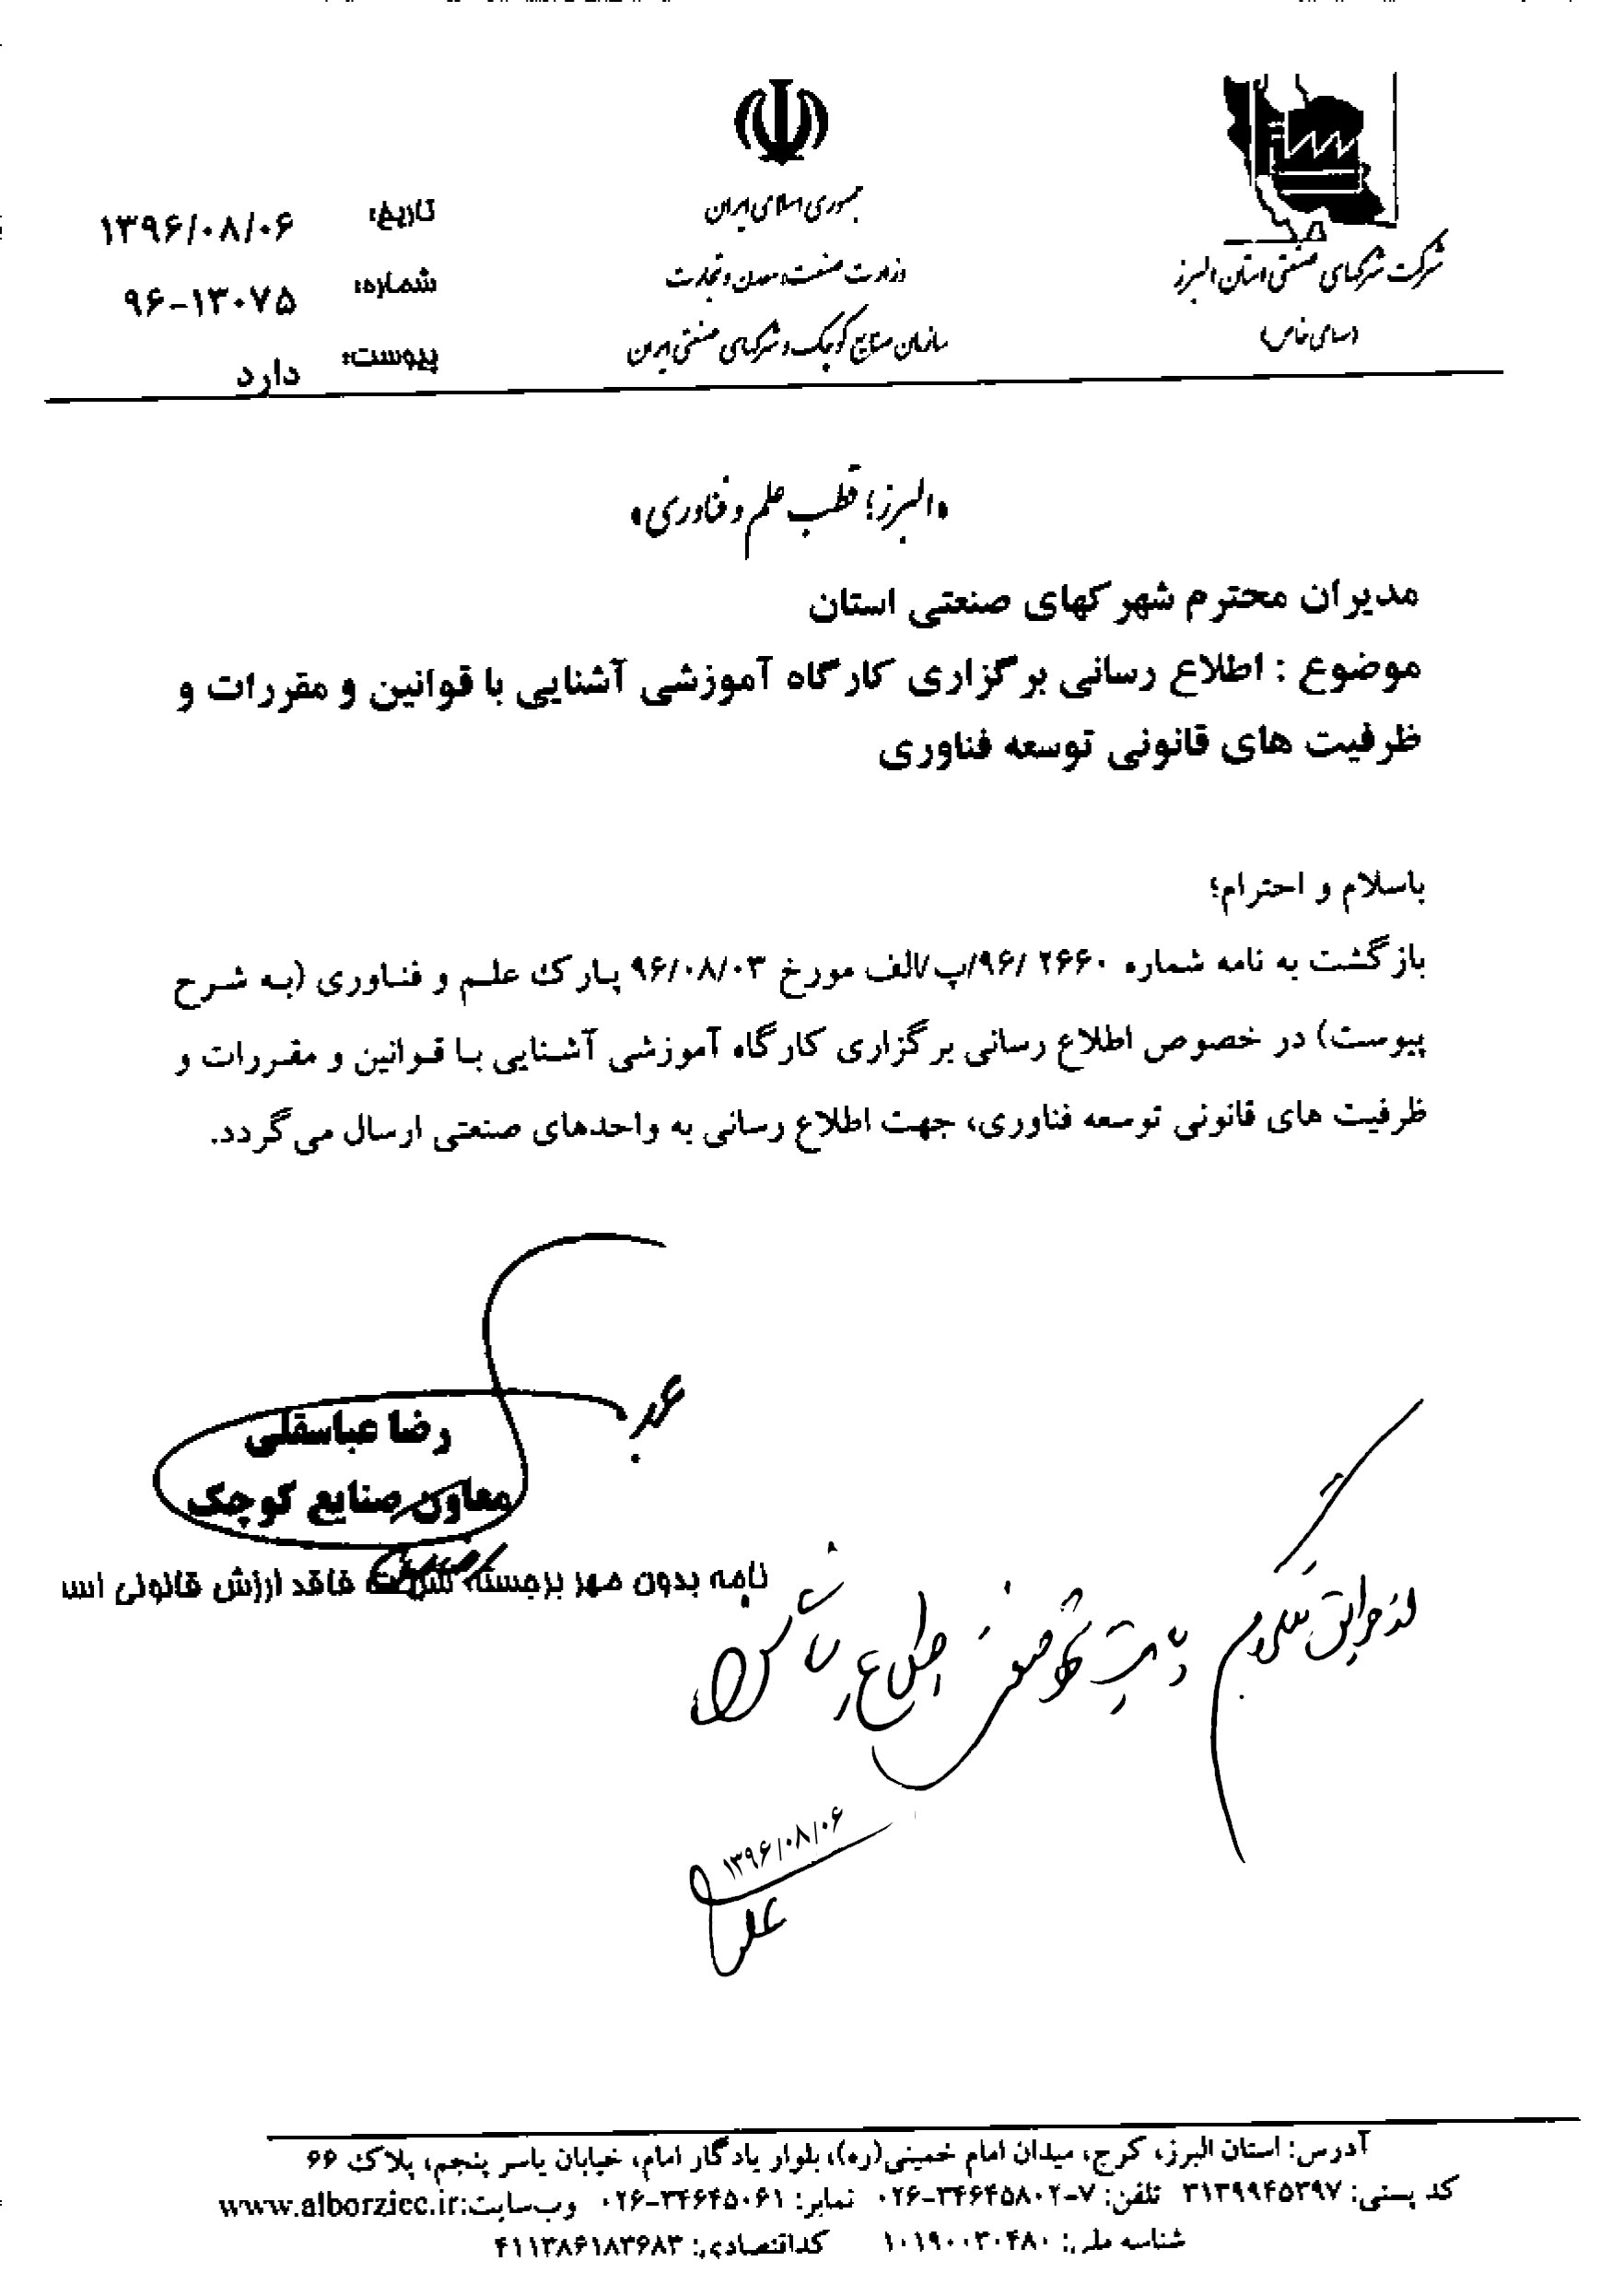 شرکت شهرکهای صنعتی استان البرز
(سهامی خاص)
جمهوری اسلامی ایران
وزارت صنعت، معدن و تجارت
سازمان صنایع کوچک و شهرکهای صنعتی ایران
تاریخ: ۱۳۹۶/۰۸/۰۶
شماره: ۹۶-۱۳۰۷۵
پیوست: دارد
«البرز؛ قطب علم و فناوری»
مدیران محترم شهرکهای صنعتی استان
موضوع : اطلاع رسانی برگزاری کارگاه آموزشی آشنایی با قوانین و مقررات و
ظرفیت های قانونی توسعه فناوری
باسلام و احترام؛
بازگشت به نامه شماره ۲۶۶۰ /۹۶/پ/الف مورخ ۹۶/۰۸/۰۳ پارک علم و فناوری (به شرح
پیوست) در خصوص اطلاع رسانی برگزاری کارگاه آموزشی آشنایی با قوانین و مقررات و
ظرفیت های قانونی توسعه فناوری، جهت اطلاع رسانی به واحدهای صنعتی ارسال می گردد.
رضا عباسقلی
معاون صنایع کوچک
نامه بدون مهر برجسته شرکت فاقد ارزش قانونی اس
اطلاع
۱۳۹۶/۰۸/۰۶
آدرس: استان البرز، کرج، میدان امام خمینی(ره)، بلوار یادگار امام، خیابان یاسر پنجم، پلاک ۶۶
کد پستی: ۳۱۳۹۹۴۵۳۹۷ تلفن: ۷-۰۲۶-۳۴۶۴۵۸۰۲ نمابر: ۰۲۶-۳۴۶۴۵۰۶۱ وب‌سایت:www.alborziec.ir
شناسه ملی: ۱۰۱۹۰۰۳۰۴۸۰ کداقتصادی: ۴۱۱۳۸۶۱۸۳۶۸۳